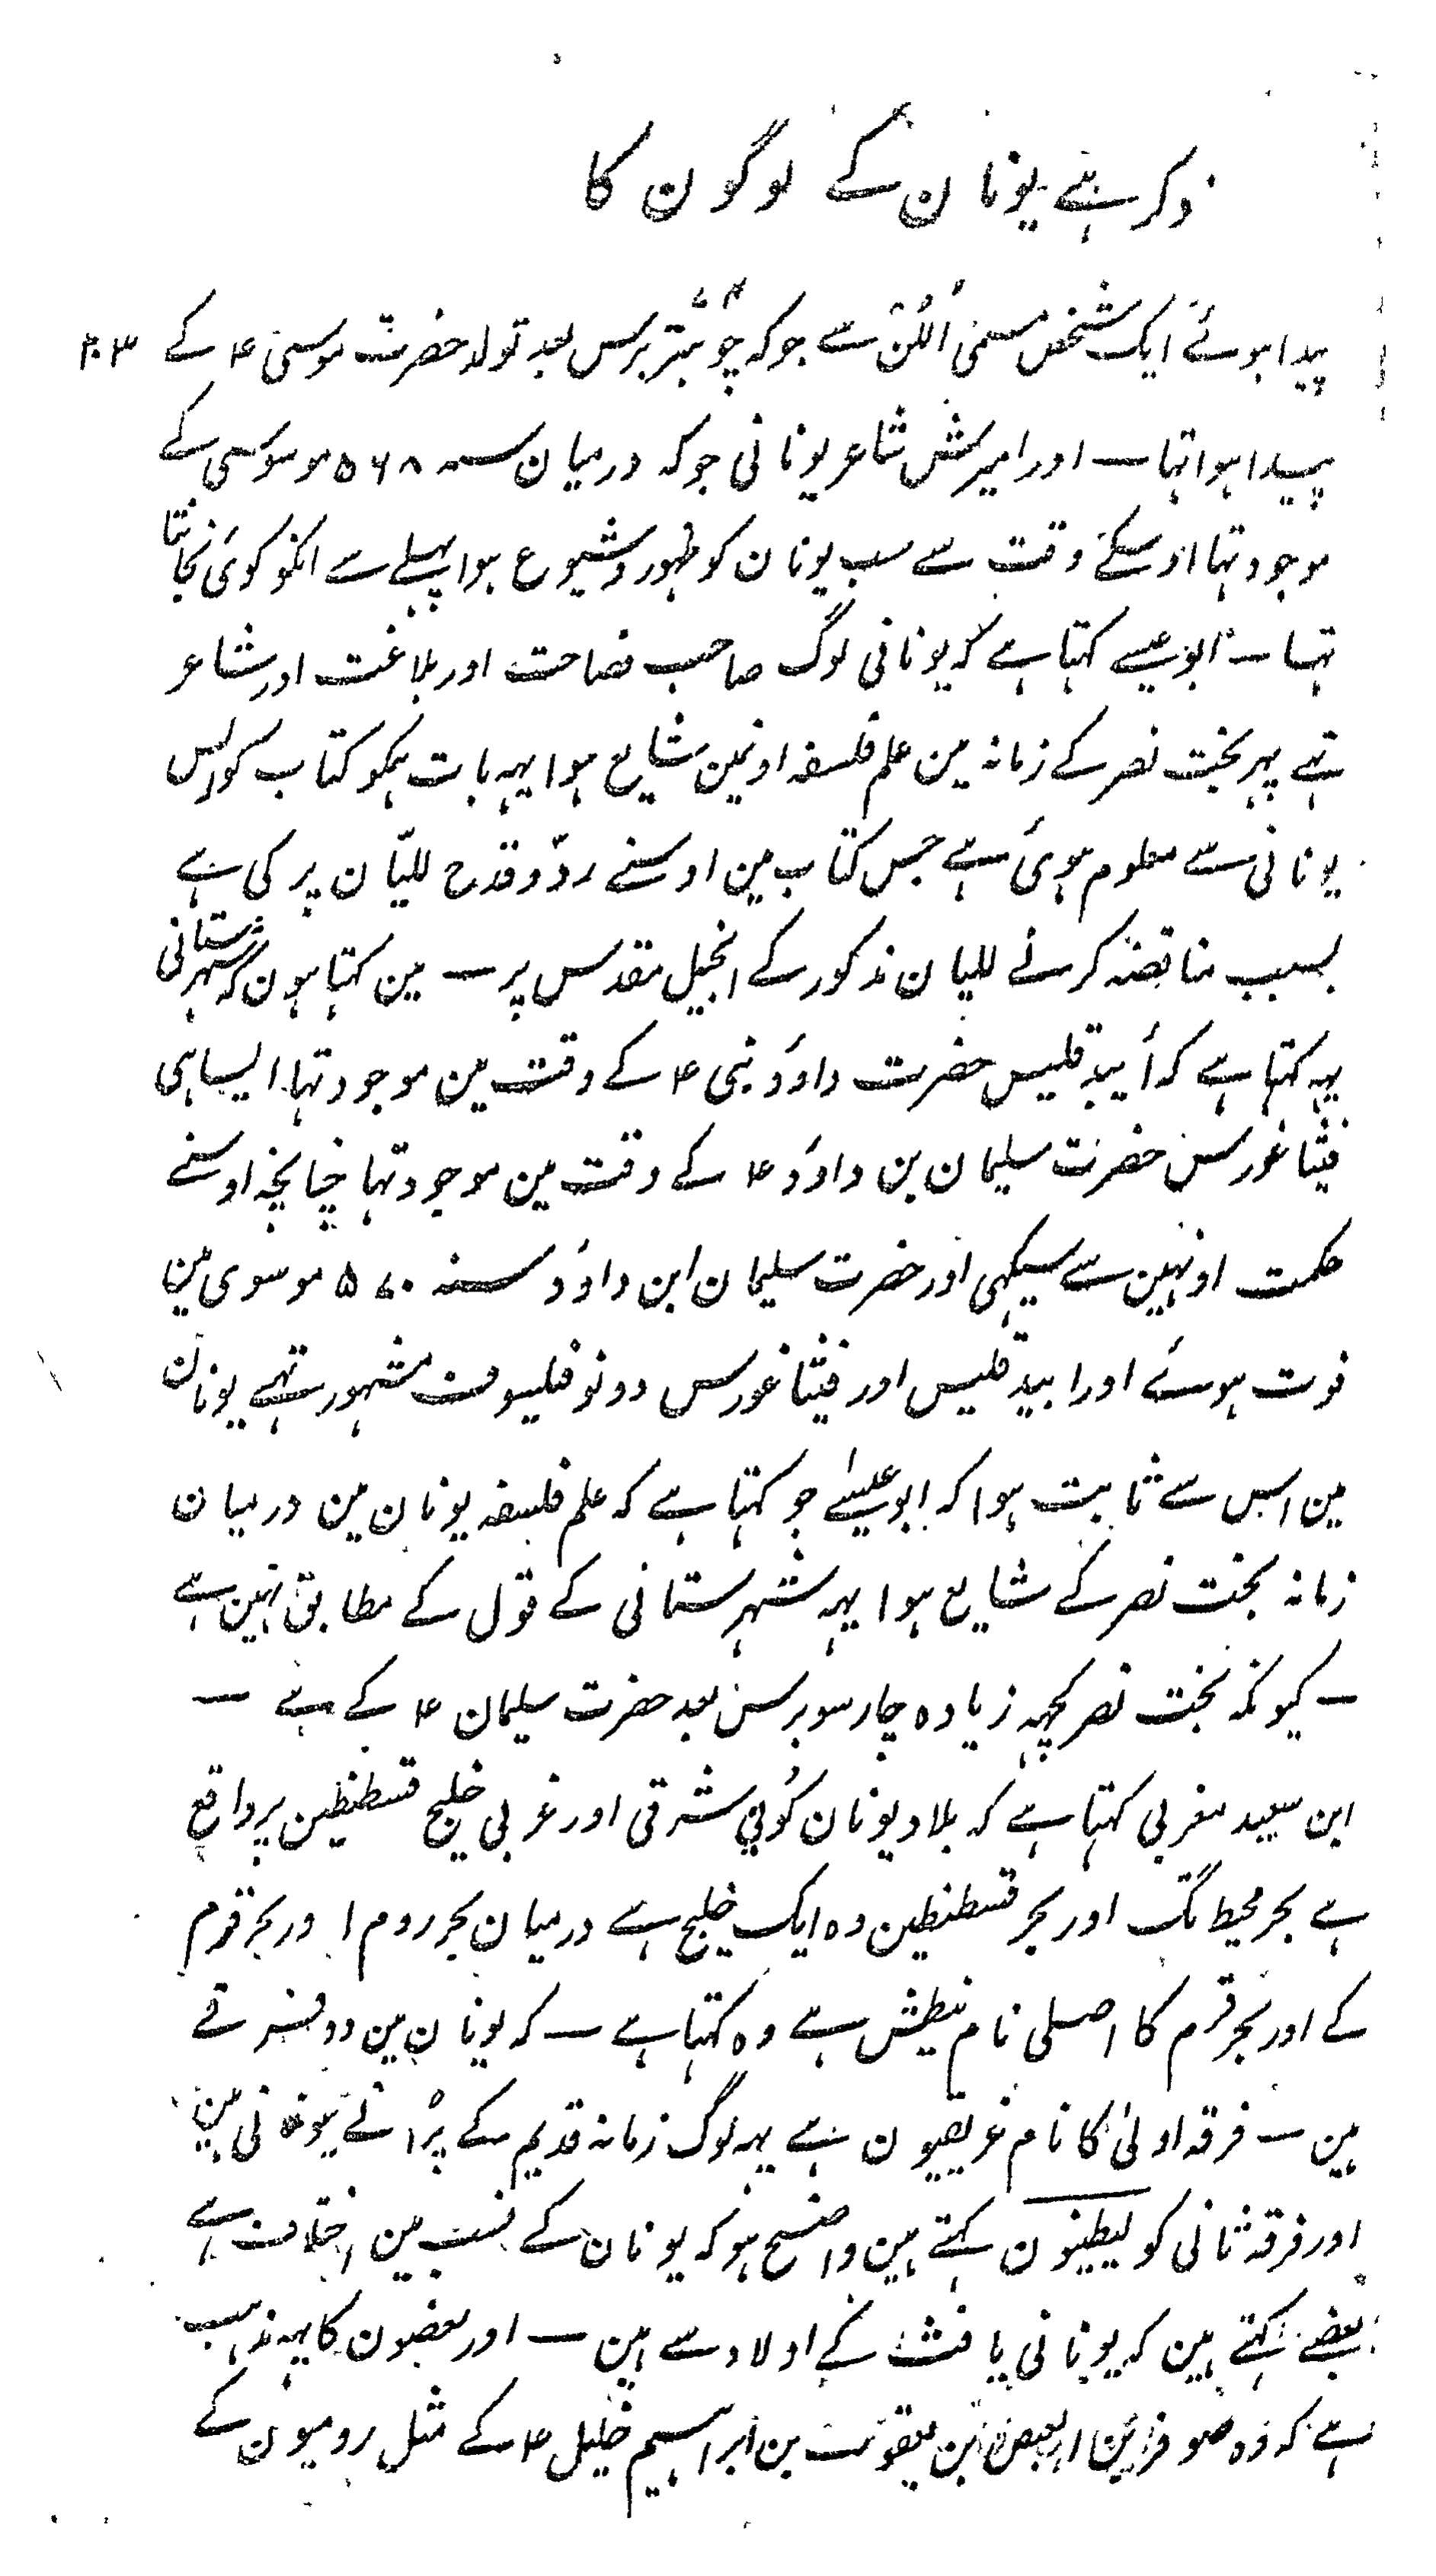 ذکر ہے یونان کے لوگون کا
پیدا ہوئے ایک شخص مسمی اللن سے جو کہ چوہتر برس بعد تولد حضرت موسیٰ ۴ کے ۳۰۳
پیدا ہوا تہا — اور امیرش شاعر یونانی جو کہ درمیان سنہ ۵۶۸ موسوی کے
موجود تہا اوسکے وقت سے سب یونان کو ظہور و شیوع ہوا پہلے سے انکو کوئی نجانتا
تہا — ابو عیسے کہتا ہے کہ یونانی لوگ صاحب فصاحت اور بلاغت اور شاعر
تہے پہر بخت نصر کے زمانہ مین علم فلسفہ اونمین شایع ہوا یہہ بات ہمکو کتاب کورلس
یونانی سے معلوم ہوئی ہے جس کتاب مین اوسنے ردّ و قدح للیّان پر کی ہے
بسبب مناقضہ کرنے للیان مذکور کے انجیل مقدس پر — مین کہتا ہون کہ شہرستانی
یہہ کہتا ہے کہ أبیدقلیس حضرت داوٗد نبی ۴ کے وقت مین موجود تہا ایسا ہی
فیثاغورس حضرت سلیمان بن داوٗد ۴ کے وقت مین موجود تہا چنانچہ اوسنے
حکمت اونہین سے سیکہی اور حضرت سلیمان ابن داوٗد سنہ ۵۷۰ موسوی مین
فوت ہوئے اور ابیدقلیس اور فیثاغورس دونو فیلسوف مشہور تہے یونان
مین اسس سے ثابت ہوا کہ ابو عیسٰے جو کہتا ہے کہ علم فلسفہ یونان مین درمیان
زمانہ بخت نصر کے شایع ہوا یہہ شہرستانی کے قول کے مطابق نہین ہے
— کیونکہ بخت نصر کچہہ زیادہ چار سو برس بعد حضرت سلیمان ۴ کے ہے —
ابن سعید مغربی کہتا ہے کہ بلاد یونان کوٗبی شرقی اور غربی خلیج قسطنطین پر واقع
ہے بحر محیط تگ اور بحر قسطنطین وہ ایک خلیج ہے درمیان بحر روم اور بحر قرم
کے اور بحر قرم کا اصلی نام نیطش ہے وہ کہتا ہے — کہ یونان مین دو فرقے
ہین — فرقہ اولیٰ کا نام غریقیون ہے یہہ لوگ زمانہ قدیم کے پرانے یونانی ہین
اور فرقہ ثانی کو لیطینون کہتے ہین واضح ہو کہ یونان کے نسب مین اختلاف ہے
بعضے کہتے ہین کہ یونانی یافث کے اولاد سے ہین — اور بعضون کا یہہ مذہب
ہے کہ وہ صوفر ابن العیص ابن یعقوب بن ابراہیم خلیل ۴ کے مثل رومیون کے